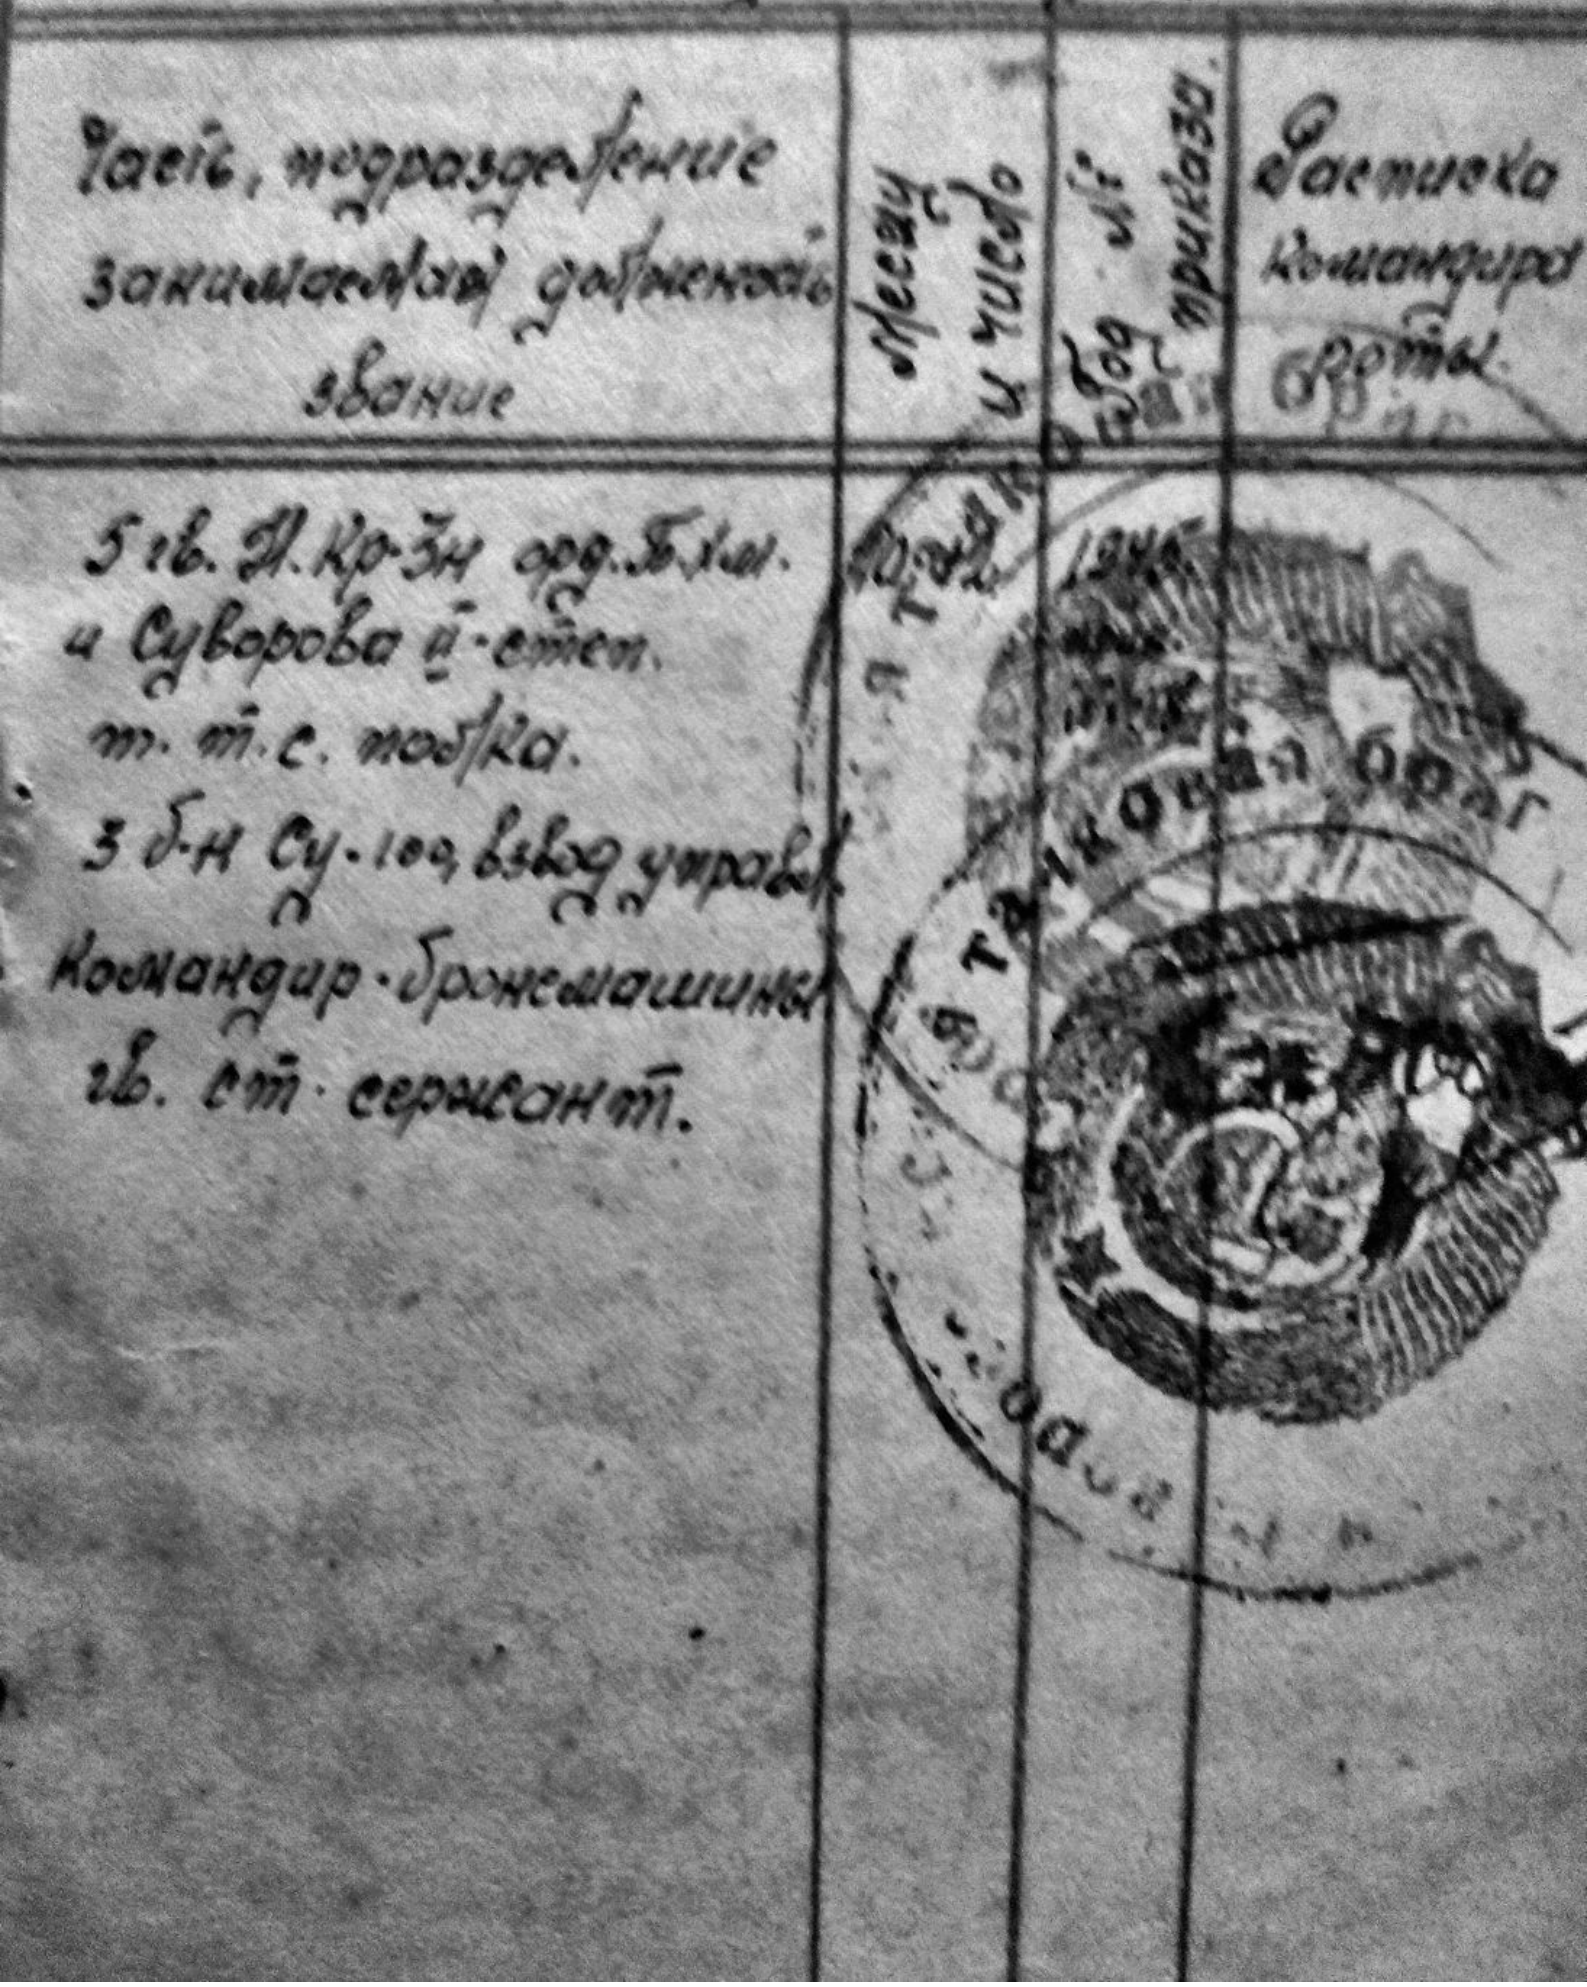 Часть, подразделение
занимаемая должность
звание
Месяц
и число
Год № 
приказа.
Расписка
командира
роты.
5 гв. Н. Кр-Зн орд. Б.Хм.
и Суворова II-степ.
т. т. с. полка.
3 б-н Су-100, взвод управл.
Командир-бронемашины
гв. ст. сержант.
194
я танковая бриг